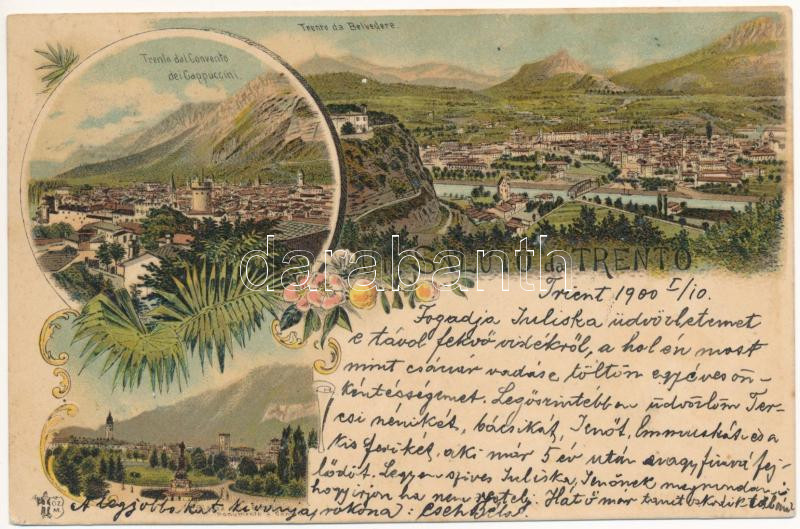 Trento da Belvedere.
Trento dal Convento
dei Cappuccini.
SALUTO da TRENTO
darabanth.com
Trient 1900 I/10.
Fogadja Juliska üdvözletemet
e távol fekvő vidékről, a hol én most
mint császár vadász töltöm egyéves ön-
kéntességemet. Legőszintébben üdvözlöm Ter-
csi nénikét, bácsikát, Jenőt, Immuskát és a
kis ferikét, aki már 5 év után nagy fiuvá fej-
lődöt. Legyen szives Juliska, Jenőnek megmondani
hogy irjon ha nem restelj. Hát ő már
A legjobbakat kivánja rokona: Cseh Béla